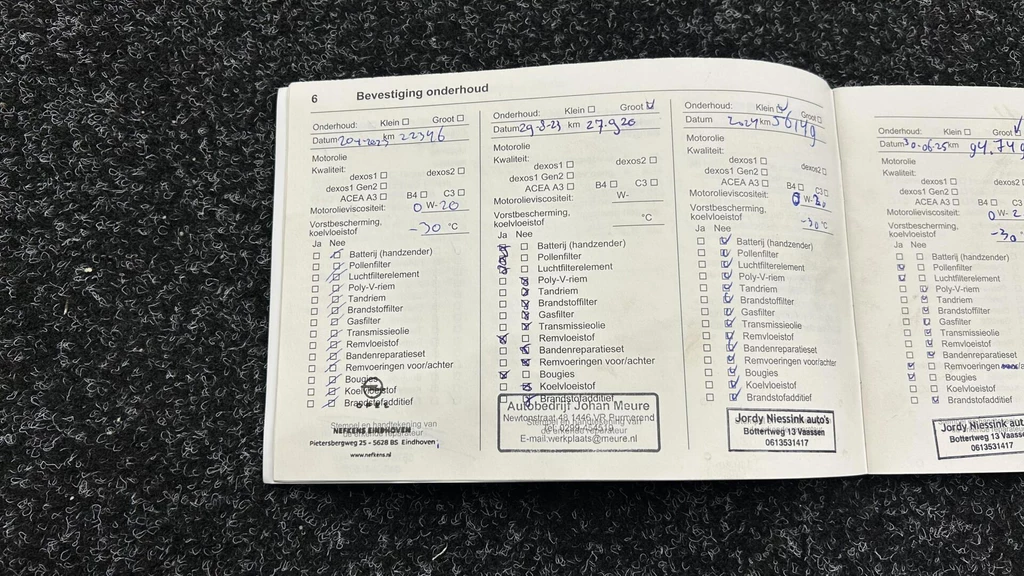 6 Bevestiging onderhoud
Onderhoud: Klein Groot
Datum km 22346
Motorolie
Kwaliteit:
dexos1 dexos2
dexos1 Gen2
ACEA A3 B4 C3
Motorolieviscositeit: 0 W- 20
Vorstbescherming,
koelvloeistof -30 °C
Ja Nee
Batterij (handzender)
Pollenfilter
Luchtfilterelement
Poly-V-riem
Tandriem
Brandstoffilter
Gasfilter
Transmissieolie
Remvloeistof
Bandenreparatieset
Remvoeringen voor/achter
Bougies
Koelvloeistof
Brandstofadditief
OPEL
Stempel en handtekening van
de erkende reparateur
NEFKENS EINDHOVEN
Pietersbergweg 25 - 5628 BS Eindhoven
www.nefkens.nl
Onderhoud: Klein Groot
Datum 29-8-23 km 27.920
Motorolie
Kwaliteit:
dexos1 dexos2
dexos1 Gen2
ACEA A3 B4 C3
Motorolieviscositeit: W-
Vorstbescherming,
koelvloeistof °C
Ja Nee
Batterij (handzender)
Pollenfilter
Luchtfilterelement
Poly-V-riem
Tandriem
Brandstoffilter
Gasfilter
Transmissieolie
Remvloeistof
Bandenreparatieset
Remvoeringen voor/achter
Bougies
Koelvloeistof
Brandstofadditief
Autobedrijf Johan Meure
Newtonstraat 48 1446 VR Purmerend
Stempel en handtekening van
de erkende reparateur
E-mail:werkplaats@meure.nl
Onderhoud: Klein Groot
Datum 2024 km 56149
Motorolie
Kwaliteit:
dexos1 dexos2
dexos1 Gen2
ACEA A3 B4 C3
Motorolieviscositeit: 0 W- 20
Vorstbescherming,
koelvloeistof -30 °C
Ja Nee
Batterij (handzender)
Pollenfilter
Luchtfilterelement
Poly-V-riem
Tandriem
Brandstoffilter
Gasfilter
Transmissieolie
Remvloeistof
Bandenreparatieset
Remvoeringen voor/achter
Bougies
Koelvloeistof
Brandstofadditief
Jordy Niessink auto's
Bottertweg 13 Vaassen
0613531417
Onderhoud: Klein Groot
Datum 30-06-25 km 94.749
Motorolie
Kwaliteit:
dexos1 dexos2
dexos1 Gen2
ACEA A3 B4 C3
Motorolieviscositeit: 0 W- 2
Vorstbescherming,
koelvloeistof -30
Ja Nee
Batterij (handzender)
Pollenfilter
Luchtfilterelement
Poly-V-riem
Tandriem
Brandstoffilter
Gasfilter
Transmissieolie
Remvloeistof
Bandenreparatieset
Remvoeringen
Bougies
Koelvloeistof
Brandstofadditief
Jordy Niessink aut
Bottertweg 13 Vaassen
0613531417